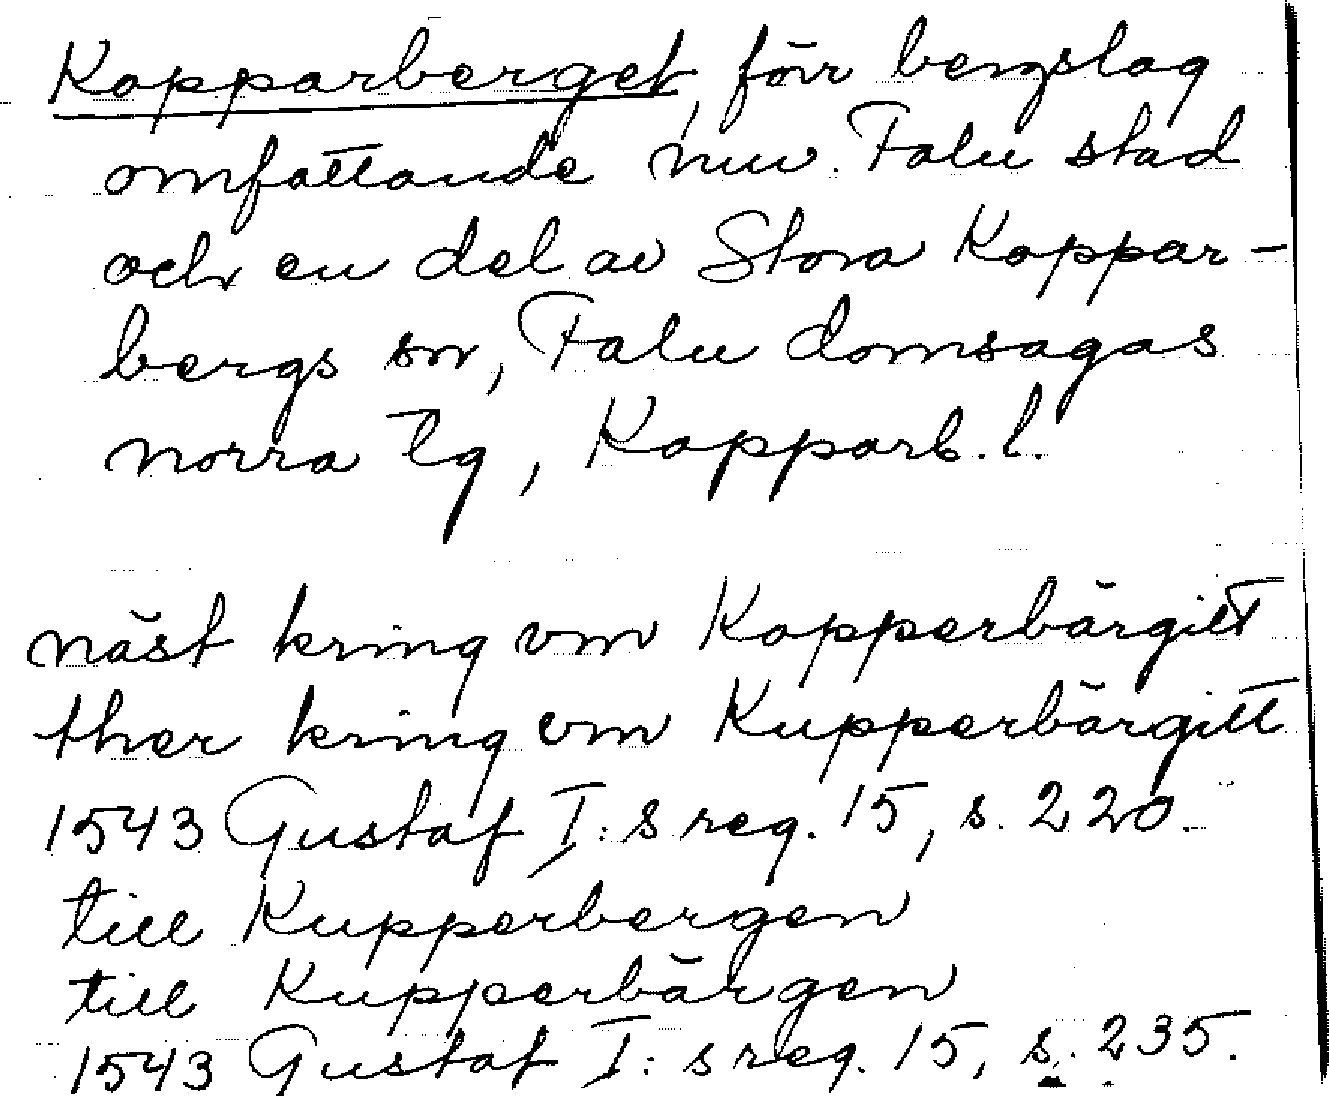 Kopparberget, förr bergslag
omfattande nuv. Falu stad
och en del av Stora Koppar-
bergs sn, Falu domsagas
norra tg, Kopparb. l.
näst kring vm Kopperbärgitt
ther kring vm Kupperbärgitt
1543 Gustaf I:s reg. 15, s. 220.
till Kupperbergen
till Kupperbärgen
1543 Gustaf I:s reg. 15, s. 235.